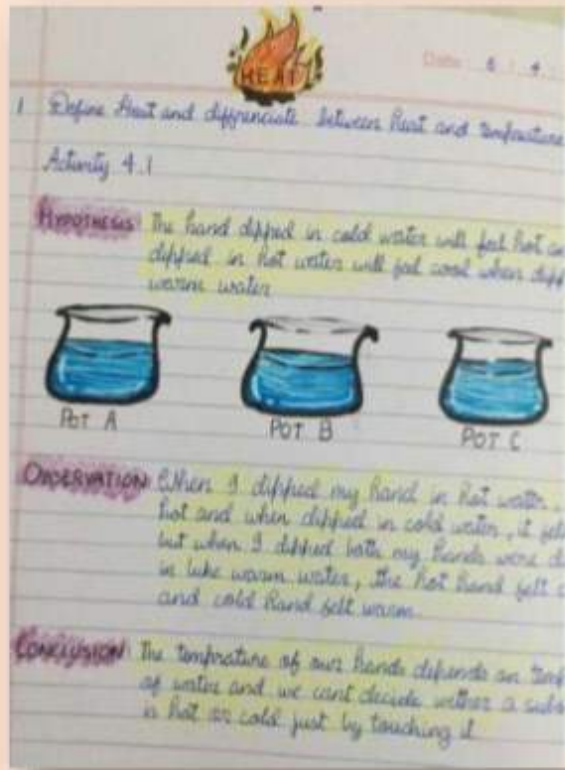 HEAT
Date: 6 4
1 Define Heat and diffrenciate between heat and temprature
Activity 4.1
HYPOTHESIS: The hand dipped in cold water will feel hot
dipped in hot water will feel cool when
warm water
POT A
POT B
POT C
OBSERVATION: When I dipped my hand in hot water,
hot and when dipped in cold water, it
but when I dipped both my hands were
in luke warm water, the hot hand felt
and cold hand felt warm.
CONCLUSION: The temprature of our hands depends on
of water and we cant decide wether a
is hot or cold just by touching it